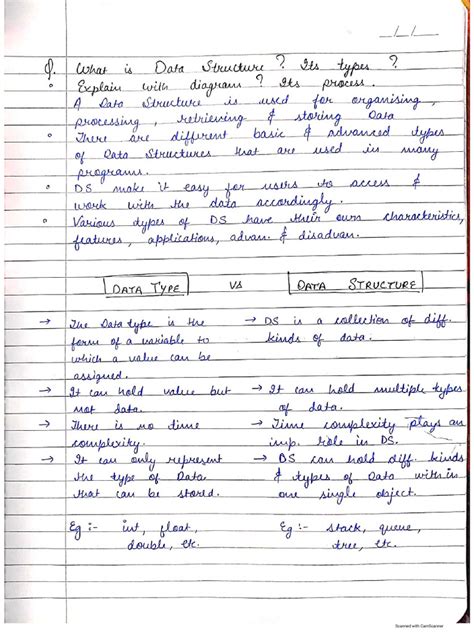 _/_/_
Q. What is Data Structure ? Its types ?
Explain with diagram ? Its process.
• A Data Structure is used for organising,
processing, retrieving & storing Data
• There are different basic & advanced types
of Data Structures that are used in many
programs.
• DS make it easy for users to access &
work with the data accordingly.
• Various types of DS have their own characteristics,
features, applications, advan. & disadvan.
DATA TYPE VS DATA STRUCTURE
→ The Data type is the → DS is a collection of diff.
form of a variable to kinds of data.
which a value can be
assigned.
→ It can hold value but → It can hold multiple types
not data. of data.
→ There is no time → Time complexity plays an
complexity. imp. role in DS.
→ It can only represent → DS can hold diff. kinds
the type of Data & types of Data within
that can be stored. one single object.
Eg :- int, float, Eg :- stack, queue,
double, etc. tree, etc.
Scanned with CamScanner